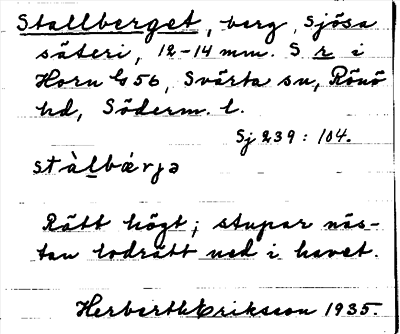 Stallberget, berg, Sjösa
säteri, 12-14 mm. S r i
Horn G 56, Svärta sn, Rönö
hd, Söderm. l.
Sj 239: 104.
stàlbærjə
Rätt högt; stupar näs-
tan lodrätt ned i havet.
Herberth Eriksson 1935.